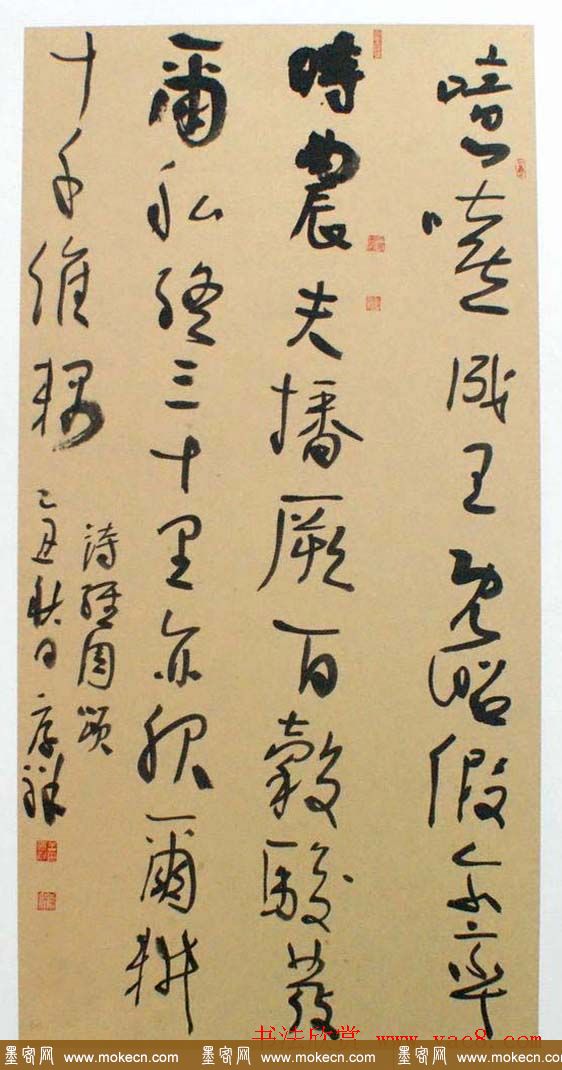 噫嘻成王既昭假尔率
時農夫播厥百穀駿發
爾私終三十里亦服爾耕
十千維耦
詩經周頌
己丑秋日
书法欣赏 www.yac8.com
墨客网 www.mokecn.com 墨客网 www.mokecn.com 墨客网 www.mokecn.com